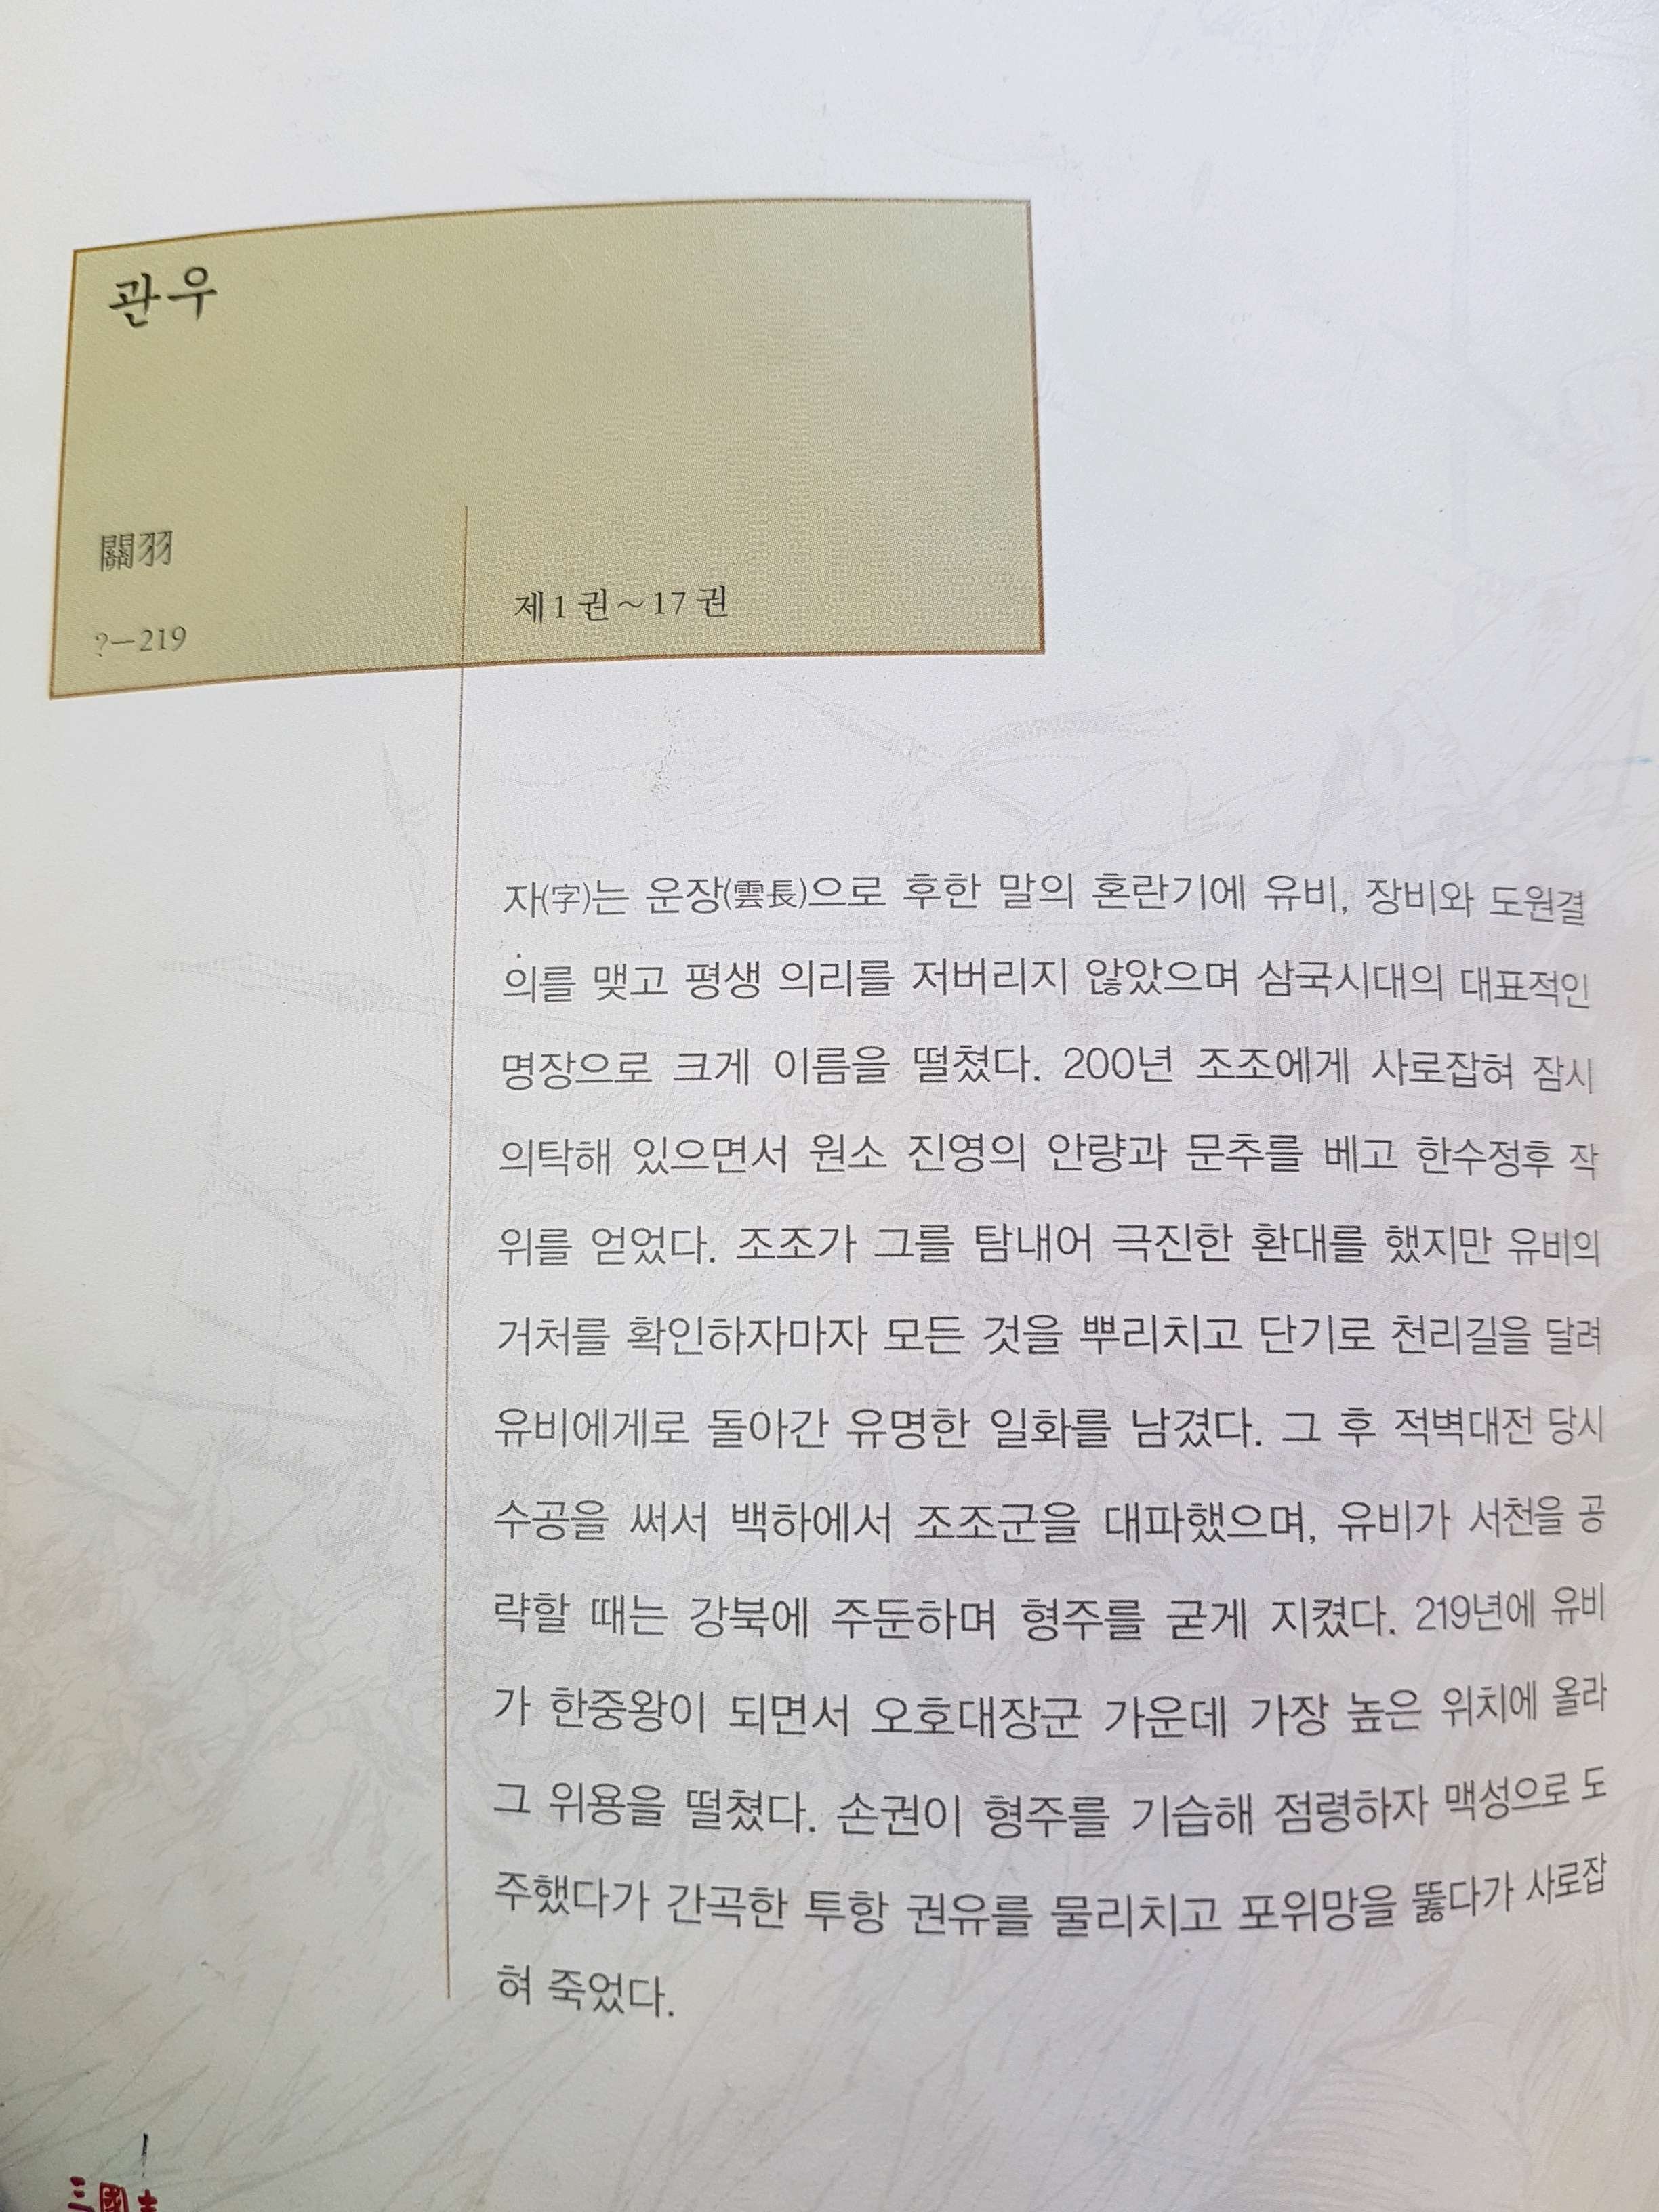 관우
關羽
?−219
제1권~17권
자(字)는 운장(雲長)으로 후한 말의 혼란기에 유비, 장비와 도원결
의를 맺고 평생 의리를 저버리지 않았으며 삼국시대의 대표적인
명장으로 크게 이름을 떨쳤다. 200년 조조에게 사로잡혀 잠시
의탁해 있으면서 원소 진영의 안량과 문추를 베고 한수정후 작
위를 얻었다. 조조가 그를 탐내어 극진한 환대를 했지만 유비의
거처를 확인하자마자 모든 것을 뿌리치고 단기로 천리길을 달려
유비에게로 돌아간 유명한 일화를 남겼다. 그 후 적벽대전 당시
수공을 써서 백하에서 조조군을 대파했으며, 유비가 서천을 공
략할 때는 강북에 주둔하며 형주를 굳게 지켰다. 219년에 유비
가 한중왕이 되면서 오호대장군 가운데 가장 높은 위치에 올라
그 위용을 떨쳤다. 손권이 형주를 기습해 점령하자 맥성으로 도
주했다가 간곡한 투항 권유를 물리치고 포위망을 뚫다가 사로잡
혀 죽었다.
三國志